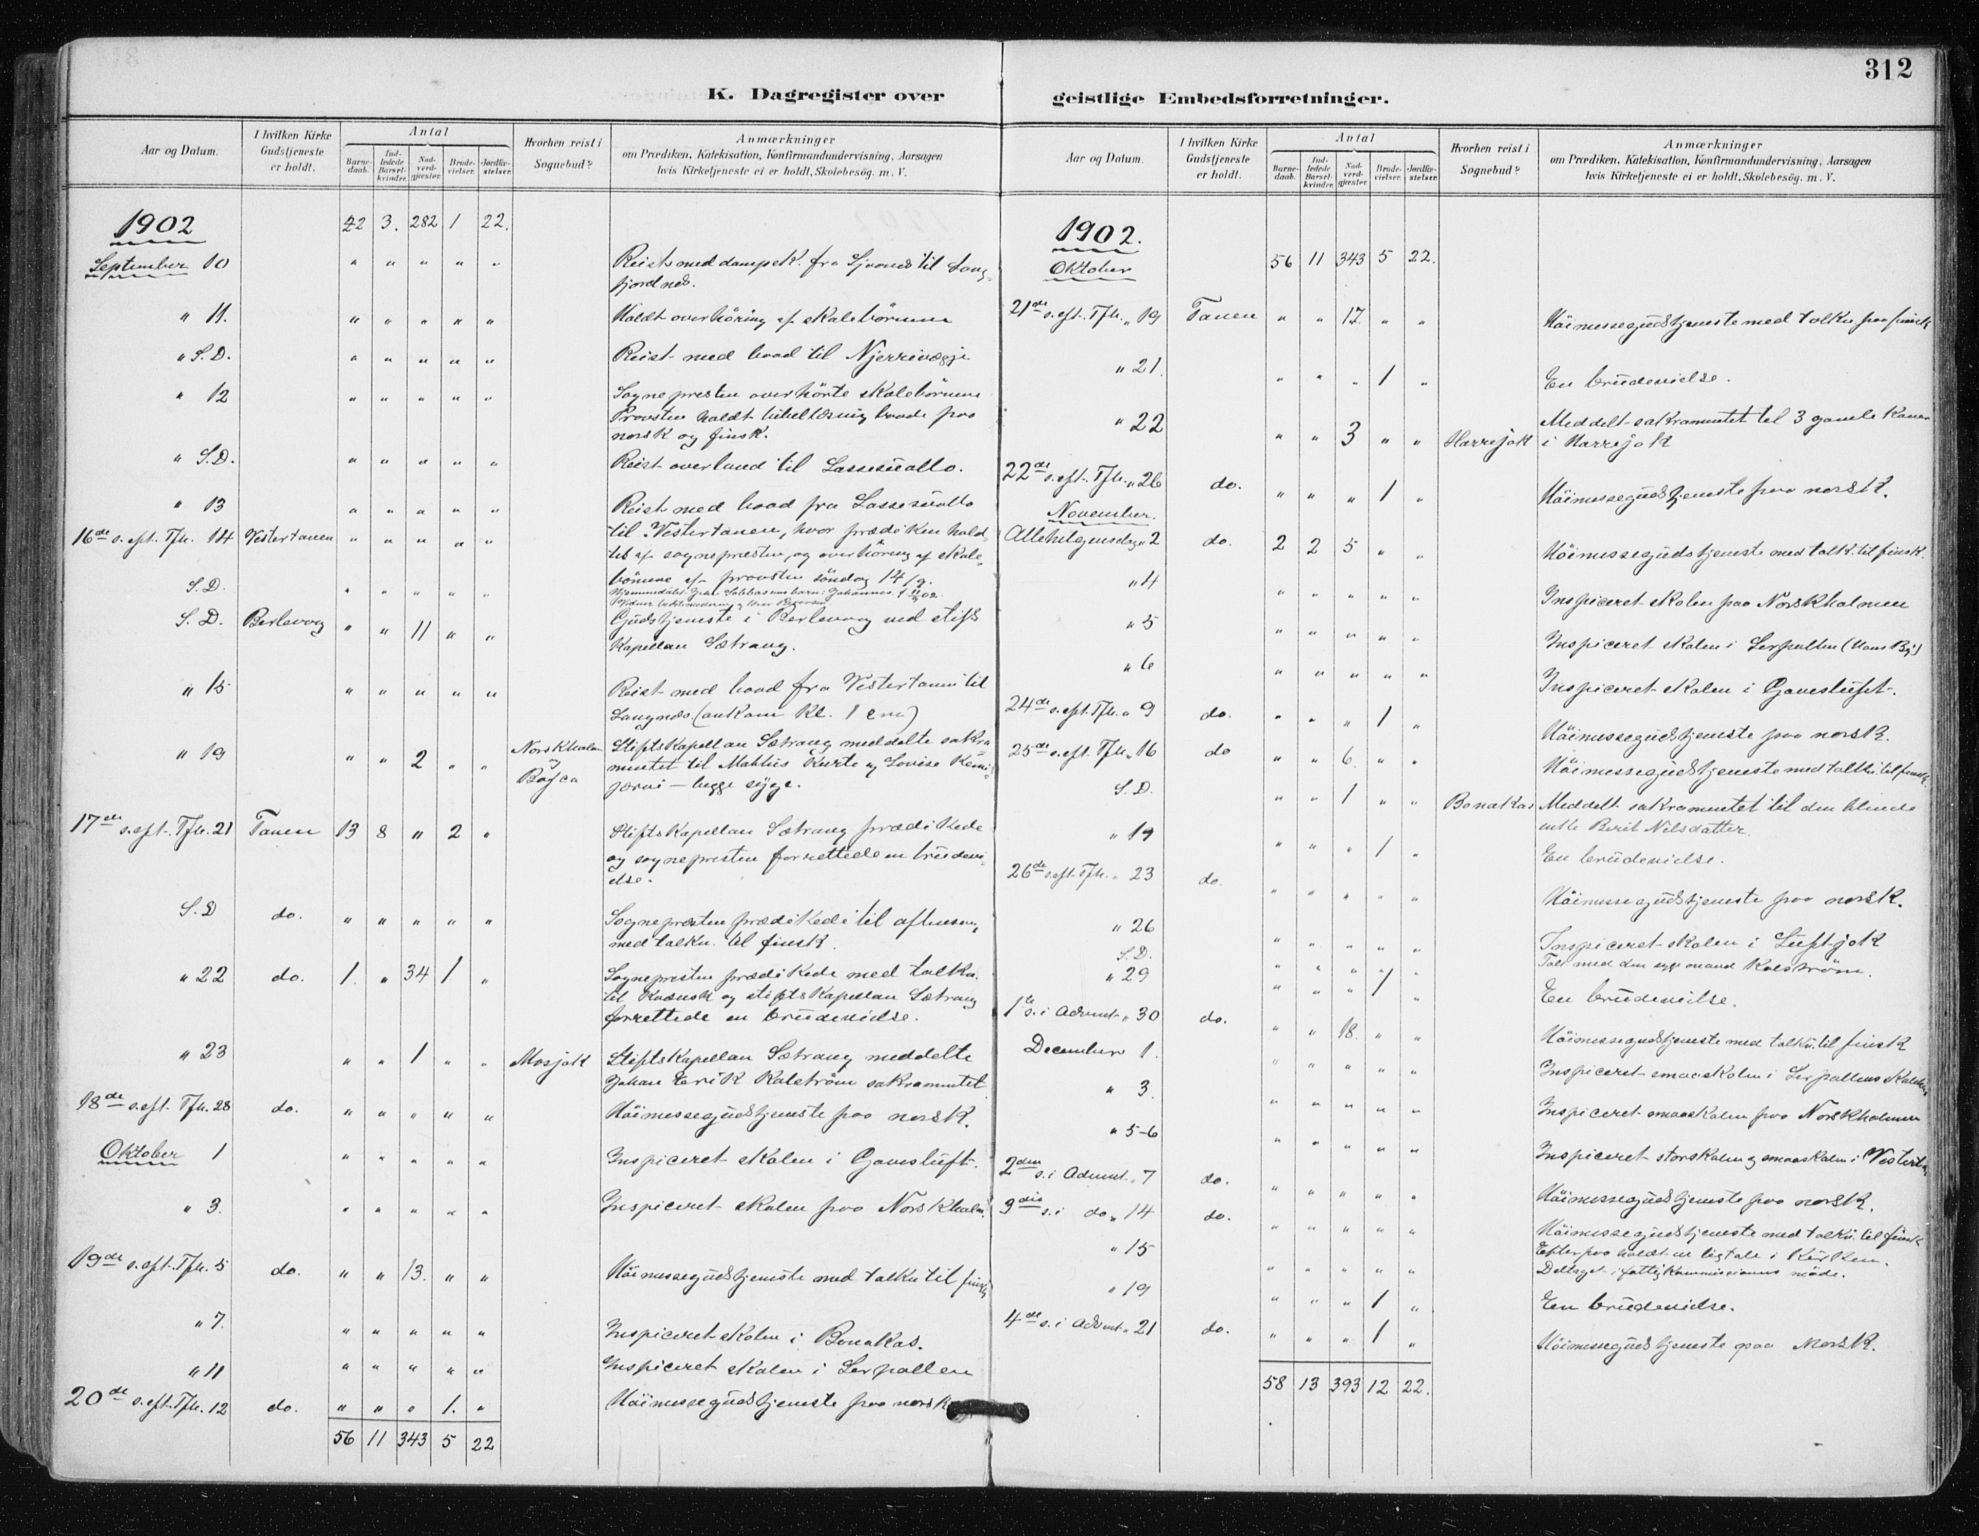 312
K. Dagregister over geistlige Embedsforretninger.
Aar og Datum. I hvilken Kirke Gudstjeneste er holdt. Antal Barne-daab. Ind-ledede Barsel-kvinder. Nad-verd-gjester Brude-vielser. Jordfæ-stelser. Hvorhen reist i Sognebud? Anmærkninger
om Prædiken, Katekisation, Konfirmandundervisning, Aarsagen
hvis Kirketjeneste ei er holdt, Skolebesög. m. V.
1902 42 3. 282 1 22.
September 10 " " " " " Reist med dampsk. fra til Lang-
fjordnes.
" 11. " " " " " Holdt overhöring af skolebörnene
" S.D. " " " " " Reist med baad til
" 12 " " " " " Sognepresten overhörte skolebörnene
Provsten holdt bibellæsning baade paa
norsk og finsk.
" S.D. " " " " " Reist overland til
" 13 " " " " " Reist med baad fra
16de s. eft. Tfh. 14 Vestertanen " " " " " til Vestertanen, hvor prædiken hold-
tes af sognepræsten, og overhöring af skole-
S.D. " " " " " börnene af provsten söndag 14/9.
S.D. Berlevaag " " 11 " " Gudstjeneste i Berlevaag ved stifts
kapellan Sætrang.
" 15 " " " " " Reist med baad fra Vestertanen til
Langnes (ankom kl. 1 em)
" 19 " " 2 " " Norskholm og Stiftskapellan Sætrang meddelte sakra-
mentet til Mathis Kurte og Lovise Kemi-
järvi – begge syge.
17de s. eft. Tfh. 21 Tanen 13 8 " 2 " Stiftskapellan Sætrang prædikede
og sognepresten forrettede en brudevi-
else.
S.D do. " " " " " Sognepræsten prædikede til aftensang
med tolkn. til finsk.
" 22 do. 1. " 34 1 " Sognepresten prædikede med tolkn.
til kvænsk og stiftskapellan Sætrang
forrettede en brudevielse.
" 23 " " 1 " " Masjok Stiftskapellan Sætrang meddelte
Johan Erik Kolström sakramentet
18de s. eft. Tfh. 28 do. " " " " " Höimessegudstjeneste paa norsk.
Oktober 1 " " " " " Inspiceret skolen i Gavesluft.
" 3. " " " " " Inspiceret skolen paa Norskholm.
19de s. eft. Tfh. 5 do. " " 13. " " Höimessegudstjeneste med tolkn. til finsk
" 7. " " " " " Inspiceret skolen i Bonakas.
" 11 " " " " " Inspiceret skolen i Serpallen
20de s. eft. Tfh. 12 do. " " " 1. " Höimessegudstjeneste paa norsk
56 11 343 5 22
Aar og Datum. I hvilken Kirke Gudstjeneste er holdt. Antal Barne-daab. Ind-ledede Barsel-kvinder. Nad-verd-gjester Brude-vielser. Jordfæ-stelser. Hvorhen reist i Sognebud? Anmærkninger
om Prædiken, Katekisation, Konfirmandundervisning, Aarsagen
hvis Kirketjeneste ei er holdt, Skolebesög. m. V.
1902.
Oktober 56 11 343 5 22.
21de s. eft. Tfh. " 19 Tanen " " 17. " " Höimessegudstjeneste med tolkn. paa finsk
" 21. " " " 1 " En brudevielse.
" 22 " " 3 " " Harrejok Meddelt sakramentet til 3 gamle koner
i Harrejok
22de s. eft. Tfh. " 26 do. " " " 1 " Höimessegudstjeneste paa norsk.
November.
Allehelgensdag " 2 do. 2 2 5 " " Höimessegudstjeneste med tolk. til finsk.
" 4 " " " " " Inspiceret skolen paa Norskholmen
" 5 " " " " " Inspiceret skolen i Serpallen
" 6 " " " " " Inspiceret skolen i Gavesluft.
24de s. eft. Tfh. " 9 do. " " " 1 " Höimessegudstjeneste paa norsk.
25de s. eft. Tfh. " 16 do " " 6. " " Höimessegudstjeneste med tolkn. til finsk.
S.D. " " 1 " " Bonakas Meddelt sakramentet til den blinde
enke Berit Nilsdatter.
" 19 " " " 1 " En brudevielse.
26de s. eft. Tfh. " 23 do. " " " " " Höimessegudstjeneste paa norsk.
" 26 " " " " " Inspiceret skolen i Luftjok
S.D. " " " " " Talt med den syge mand Kolström.
" 29 " " " 1 " En brudevielse.
1ste s. i Advent " 30 do. " " 18. " " Höimessegudstjeneste med tolkn. til finsk
December 1. " " " " " Inspiceret smaaskolen i Serpallens
" 3. " " " " " Inspiceret smaaskolen paa Norskholmen
" 5-6 " " " " " Inspiceret storskolen og smaaskolen i Vestertanen
2den s. i Advent " 7 do. " " " " " Höimessegudstjeneste paa norsk.
3die s. i do " 14 do. " " " " " Höimessegudstjeneste med tolkn. til finsk
Efterpaa holdt en ligtale i kirken.
" 15 " " " " " Deltaget i fattigkommissionens möde.
" 19 " " " 1 " En brudevielse.
4de s. i Advent " 21 do. " " " 1 " Höimessegudstjeneste paa Norsk.
58 13 393 12 22.